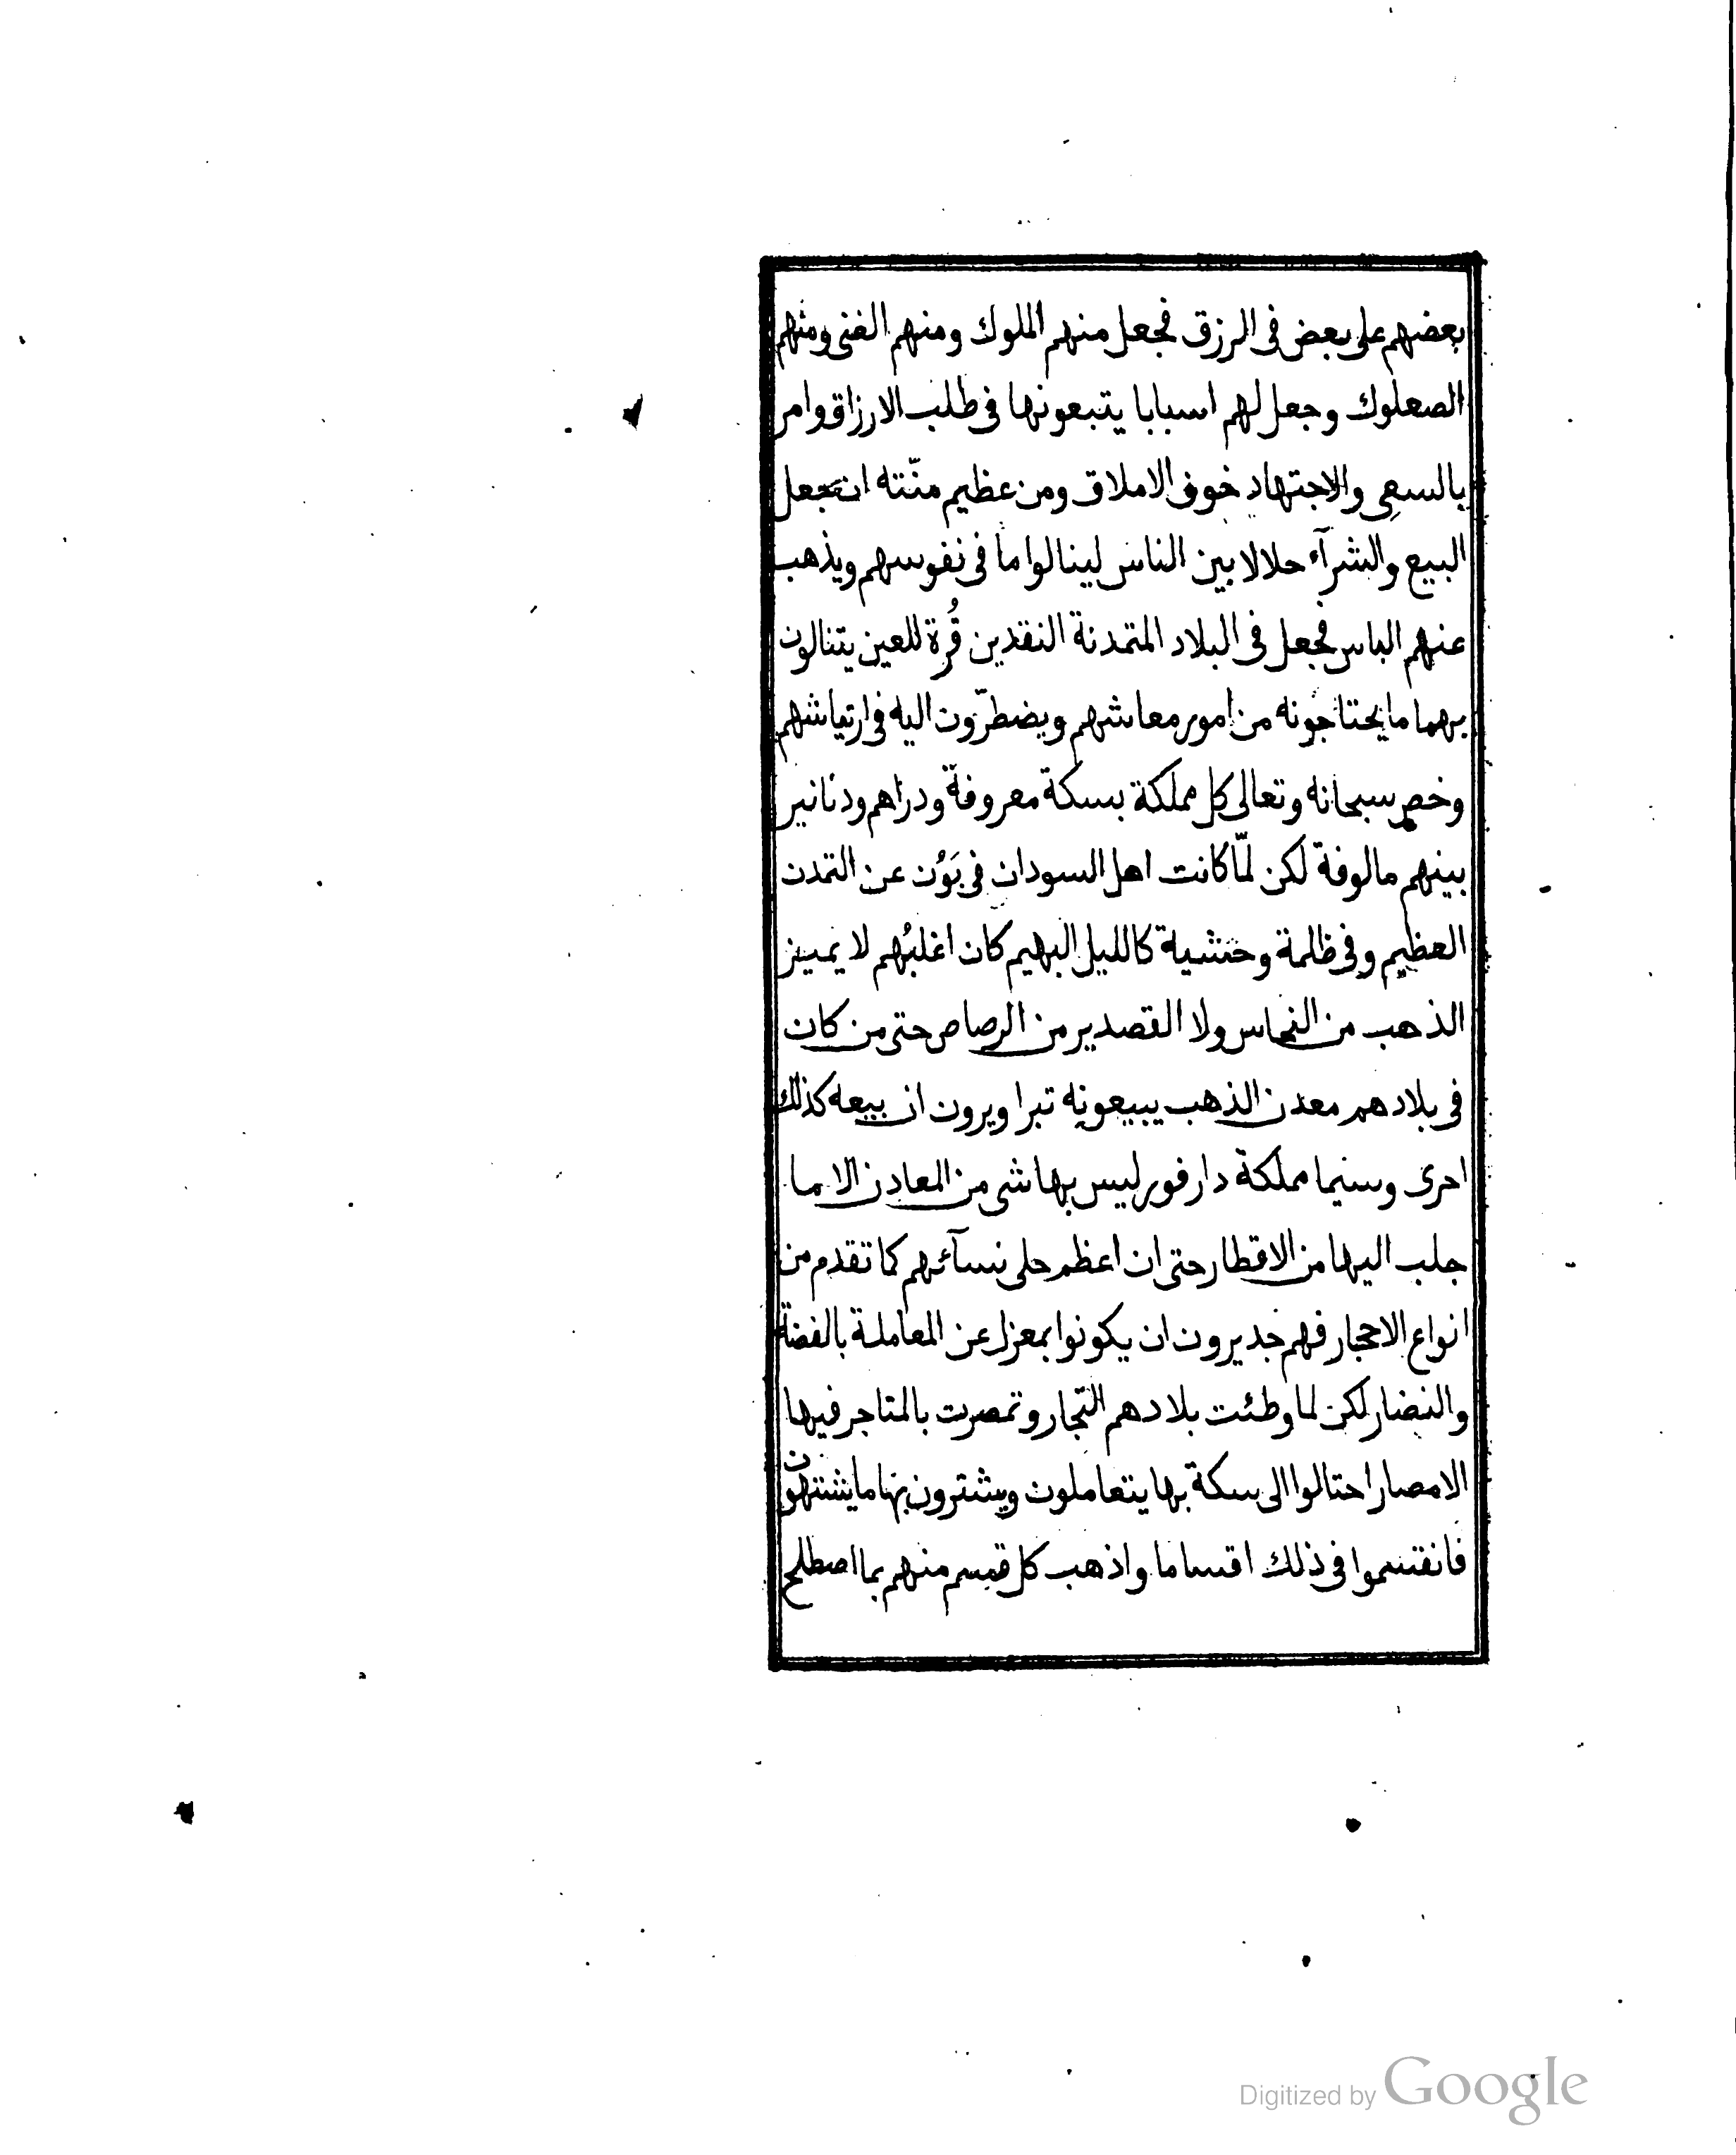 بعضهم على بعض فى الرزق فجعل منهم الملوك ومنهم الغنى ومنهم
الصعلوك وجعل لهم اسبابا يتبعونها فى طلب الارزاق وامر
بالسعى والاجتهاد خوف الاملاق ومن عظيم منّته ان جعل
البيع والشرآء حلالا بين الناس لينالوا ما فى نفوسهم ويذهب
عنهم الباس فجعل فى البلاد المتمدنة النقدين قُرة للعين يتنالون
بهما ما يحتاجونه من امور معاشهم ويضطرّون اليه فى ارتياشهم
وخص سبحانه وتعالى كل مملكة بسكة معروفة ودراهم ودنانير
بينهم مالوفة لكن لمّا كانت اهل السودان فى بَوْن عن التمدن
العظيم وفى ظلمة وحشية كالليل البهيم كان اغلبُهم لا يميز
الذهب من النحاس ولا القصدير من الرصاص حتى من كان
فى بلادهم معدن الذهب يبيعونه تبرا ويرون ان بيعه كذلك
احرى وسيما مملكة دارفور ليس بها شى من المعادن الا ما
جلب اليها من الاقطار حتى ان اعظم حلى نسآئهم كما تقدم من
انواع الاحجار فهم جديرون ان يكونوا بمعزل عن المعاملة بالفضة
والنضار لكن لما وطئت بلادهم التجار وتمصرت بالمتاجر فيها
الامصار احتالوا الى سكة بها يتعاملون ويشترون بها ما يشتهون
فانقسموا فى ذلك اقساما واذهب كل قسم منهم بما اصطلح
Digitized by Google